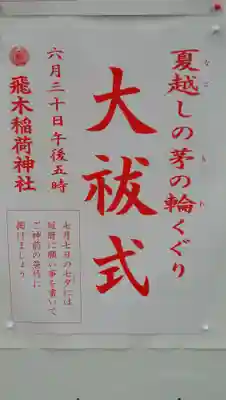 夏越しの茅の輪くぐり
大祓式
六月三十日午後五時
飛木稲荷神社
七月七日の七夕には
短冊に願い事を書いて
ご神前の笹竹に
掛けましょう